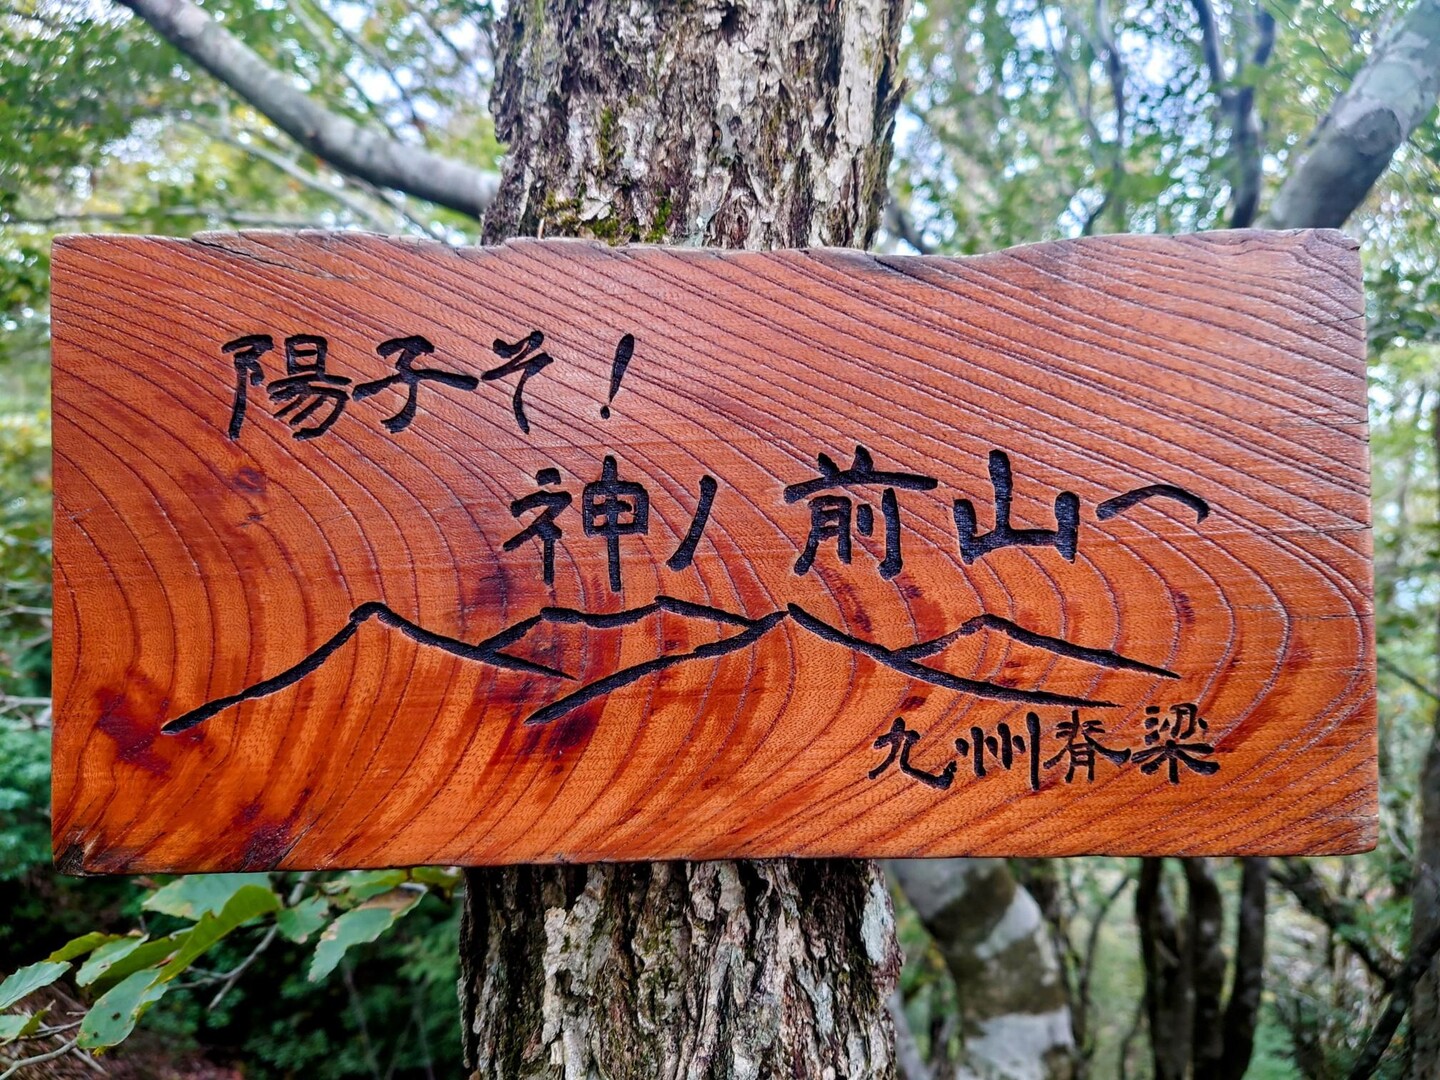 陽子そ!
神ノ前山へ
九州脊梁